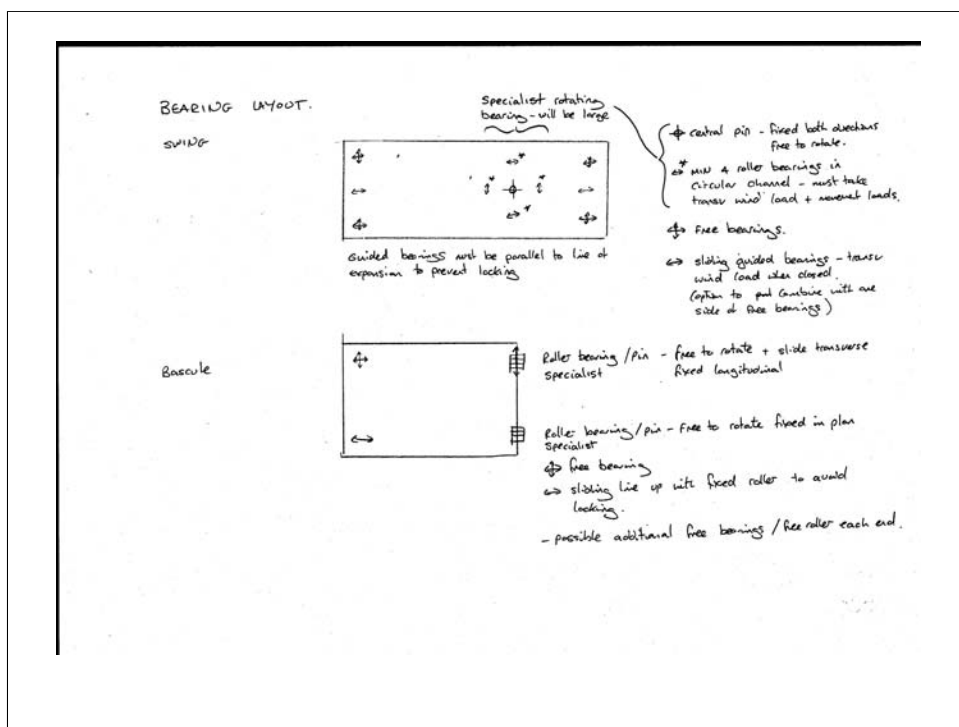 BEARING LAYOUT.
SWING
Specialist rotating
bearing - will be large
central pin - fixed both directions
free to rotate.
MIN 4 roller bearings in
circular channel - must take
transv wind load + movement loads.
Free bearings.
sliding guided bearings - transv
wind load when closed.
(option to combine with one
side of free bearings)
Guided bearings must be parallel to line of
expansion to prevent locking
Bascule
Roller bearing/pin - free to rotate + slide transverse
specialist fixed longitudinal
Roller bearing/pin - free to rotate fixed in plan
specialist
free bearing
sliding line up with fixed roller to avoid
locking.
- possible additional free bearings/free roller each end.